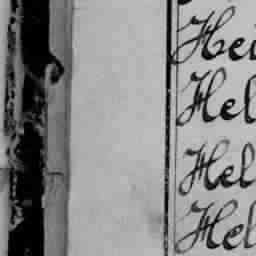 Hei
Hel
Hel
Hel